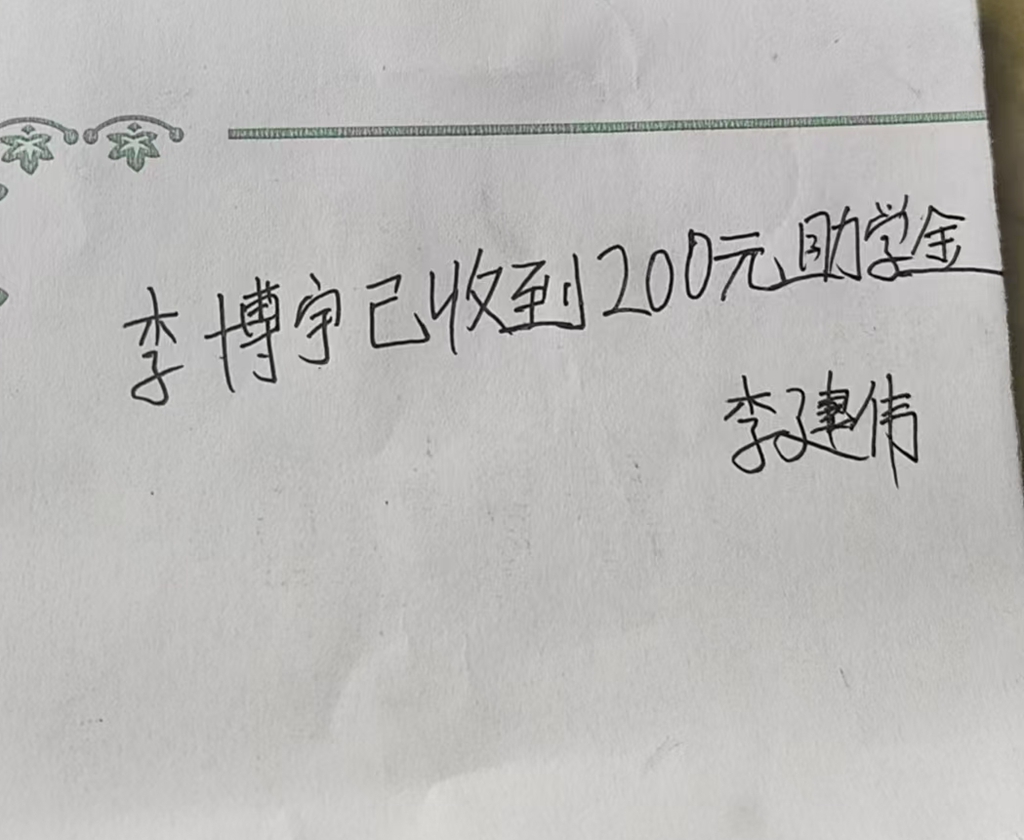 李博宇已收到200元助学金
李建伟